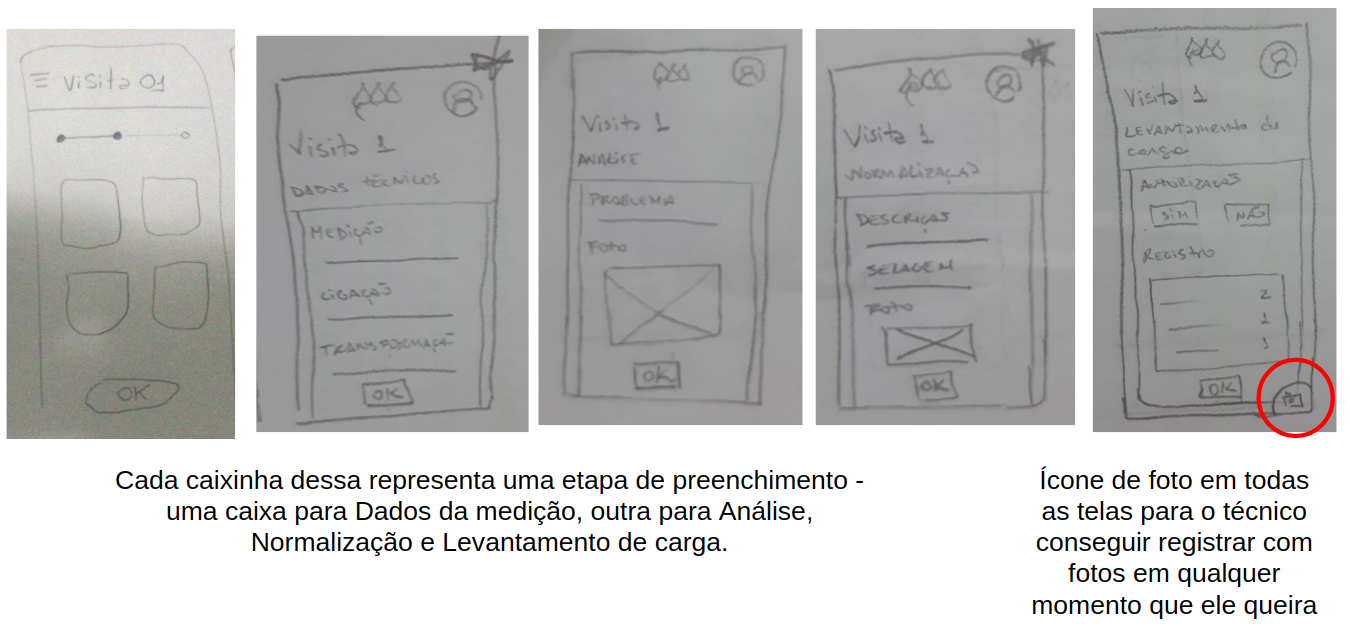 Visita 01
OK
Visita 1
DADOS TÉCNICOS
MEDIÇÃO
LIGAÇÃO
TRANSFORMAÇÃ
OK
Visita 1
ANÁLISE
PROBLEMA
Foto
OK
Visita 1
NORMALIZAÇÃO
DESCRIÇÃO
SELAGEM
Foto
OK
Visita 1
LEVANTAMENTO de
carga
AUTORIZAÇÃO
SIM NÃO
REGISTRO
2
1
1
OK
Cada caixinha dessa representa uma etapa de preenchimento -
uma caixa para Dados da medição, outra para Análise,
Normalização e Levantamento de carga.
Ícone de foto em todas
as telas para o técnico
conseguir registrar com
fotos em qualquer
momento que ele queira